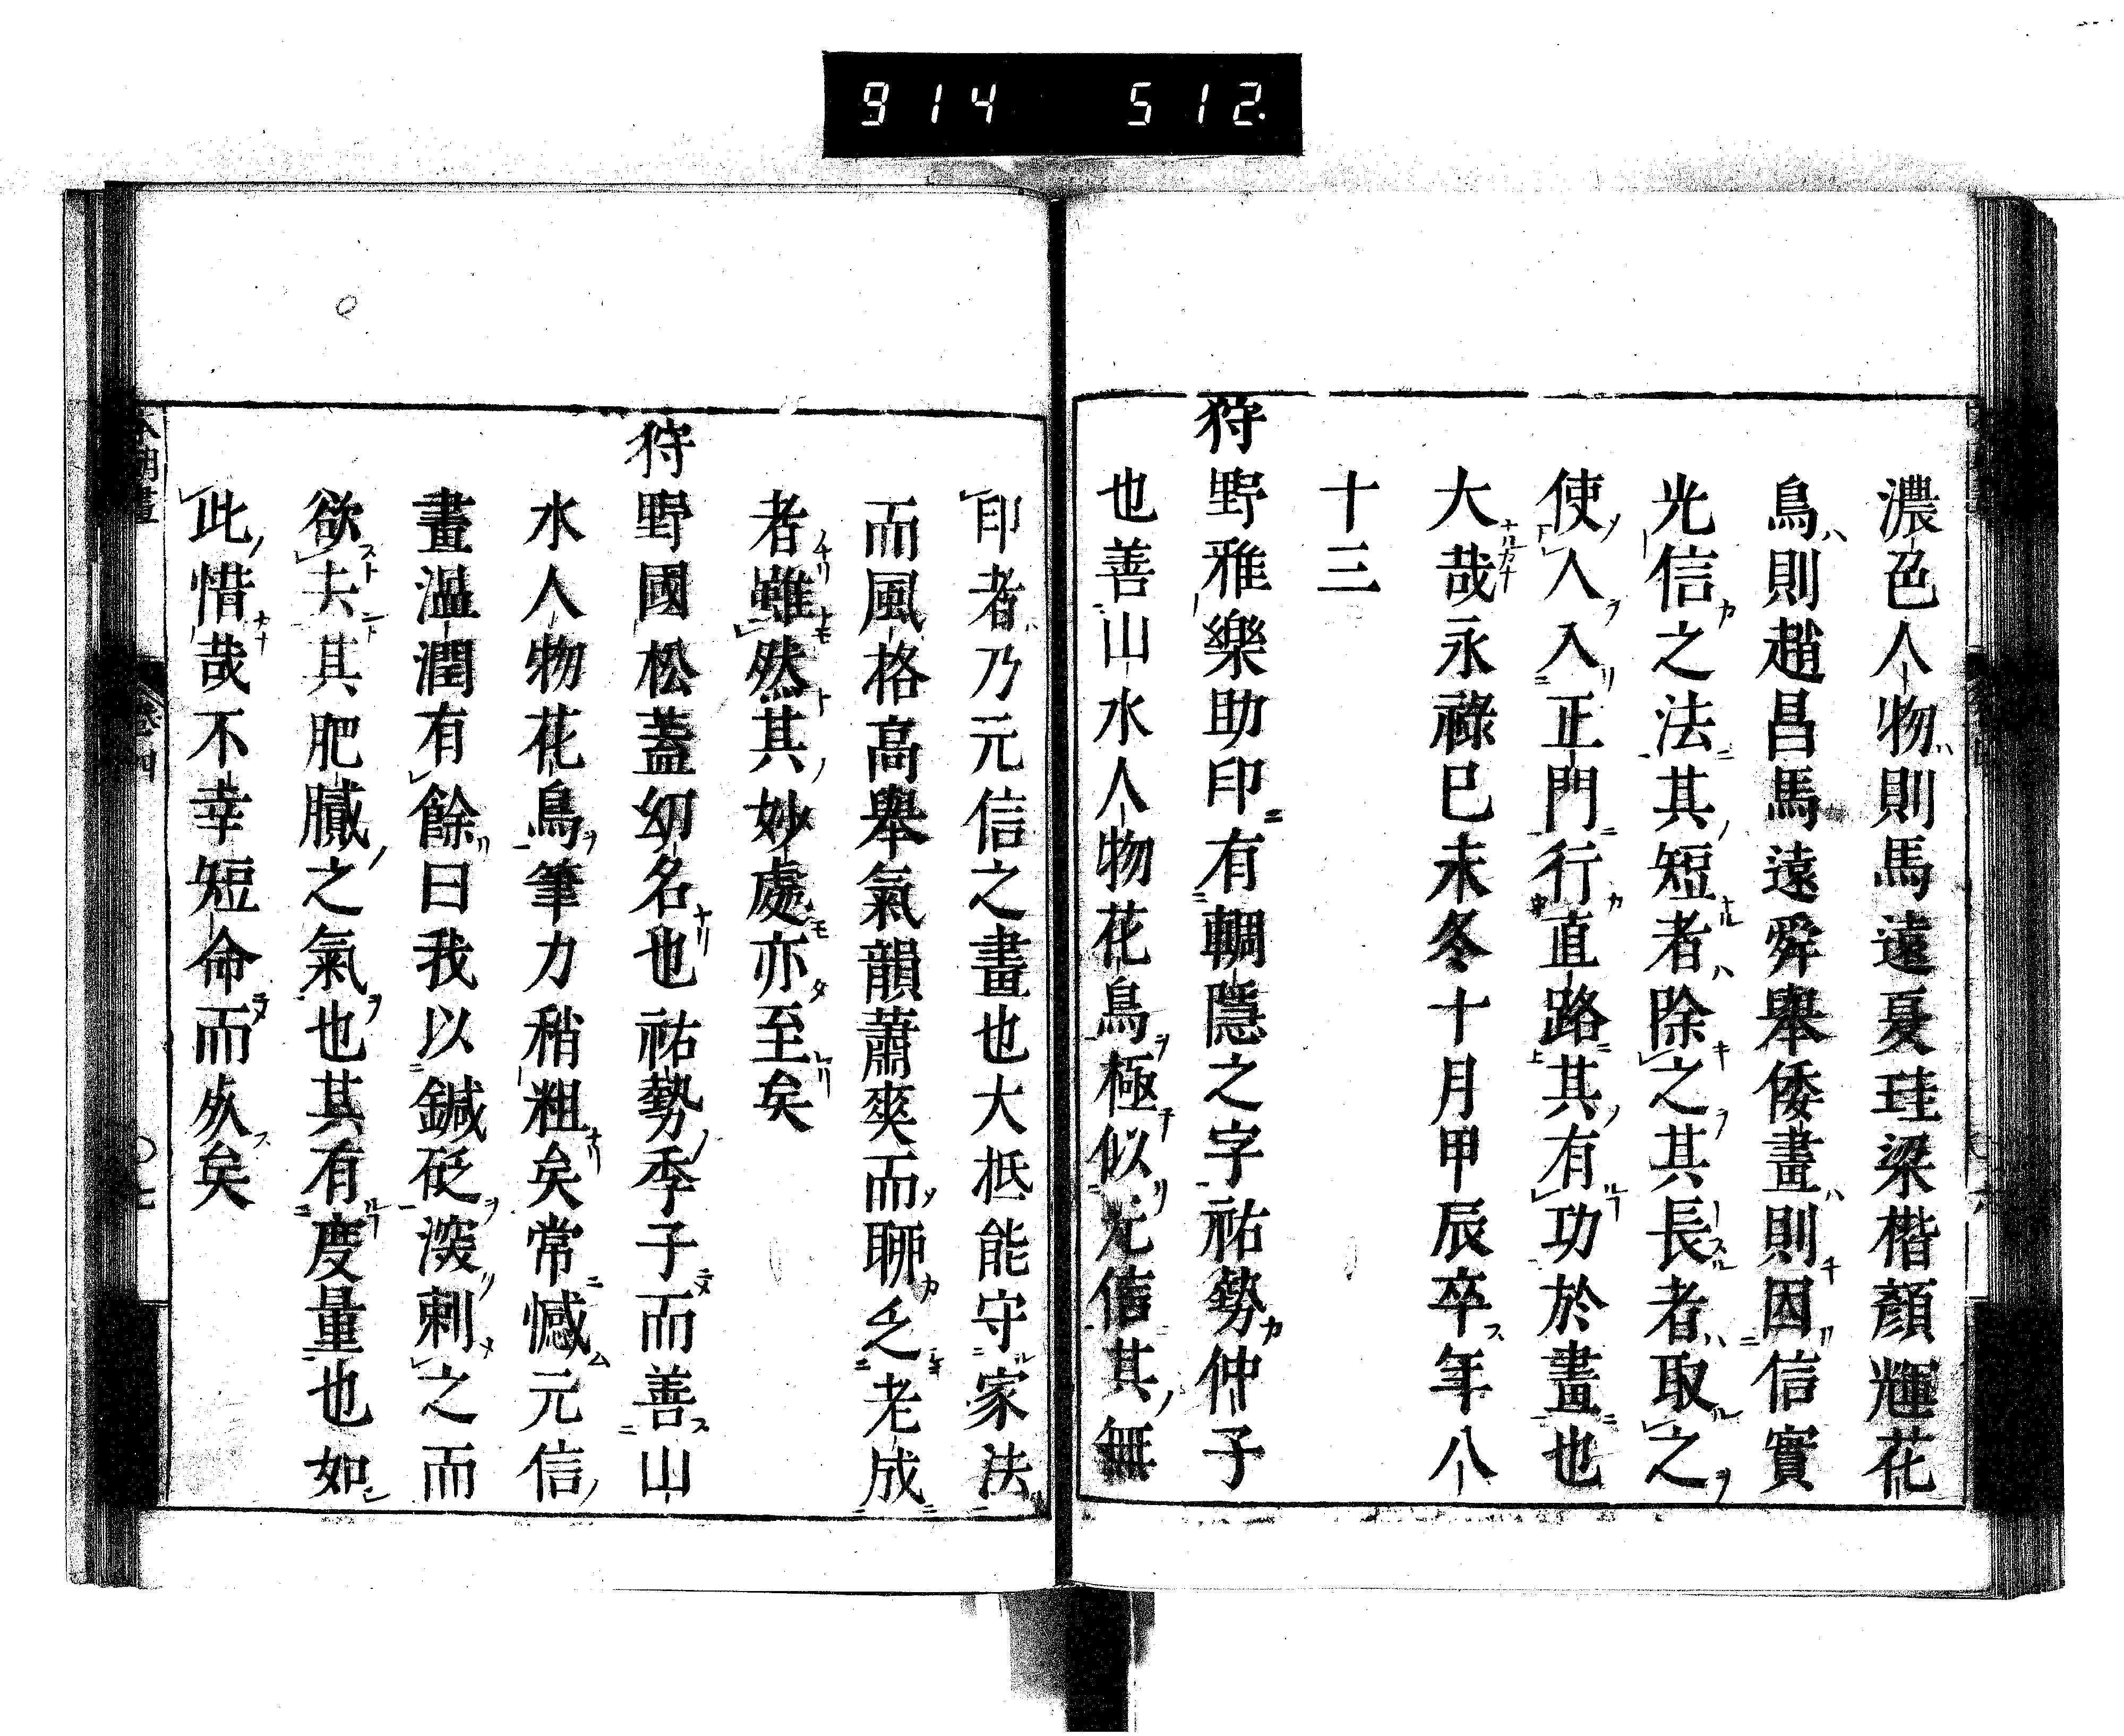 914 512.
濃色人物則馬遠夏珪梁楷顏輝花
鳥則趙昌馬遠舜舉倭畫則因信實
光信之法其短者除之其長者取之
使入入正門行直路其有功於畫也
大哉永祿巳未冬十月甲辰卒年八
十三
狩野雅樂助印有輞隱之字祐勢仲子
也善山水人物花鳥極似元信其無
印者乃元信之畫也大抵能守家法
而風格高舉氣韻蕭爽而聊乏老成
者雖然其妙處亦至矣
狩野國松蓋幼名也祐勢季子而善山
水人物花鳥筆力稍粗矣常憾元信
畫溫潤有餘曰我以鍼砭深刺之而
欲去其肥膩之氣也其有度量也如
此惜哉不幸短命而夭矣